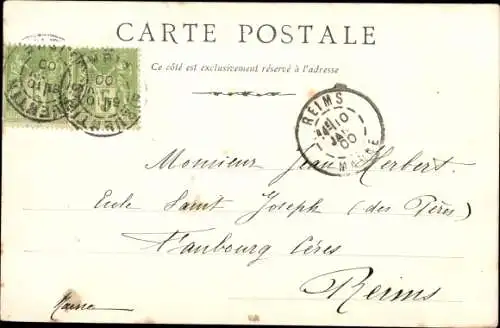 CARTE POSTALE
Ce côté est exclusivement réservé à l'adresse
REIMS
10
JANV
00
MARNE
Monsieur Jean Herbert.
Ecole Saint Joseph (des Pères)
Faubourg Cérès
Reims
Marne